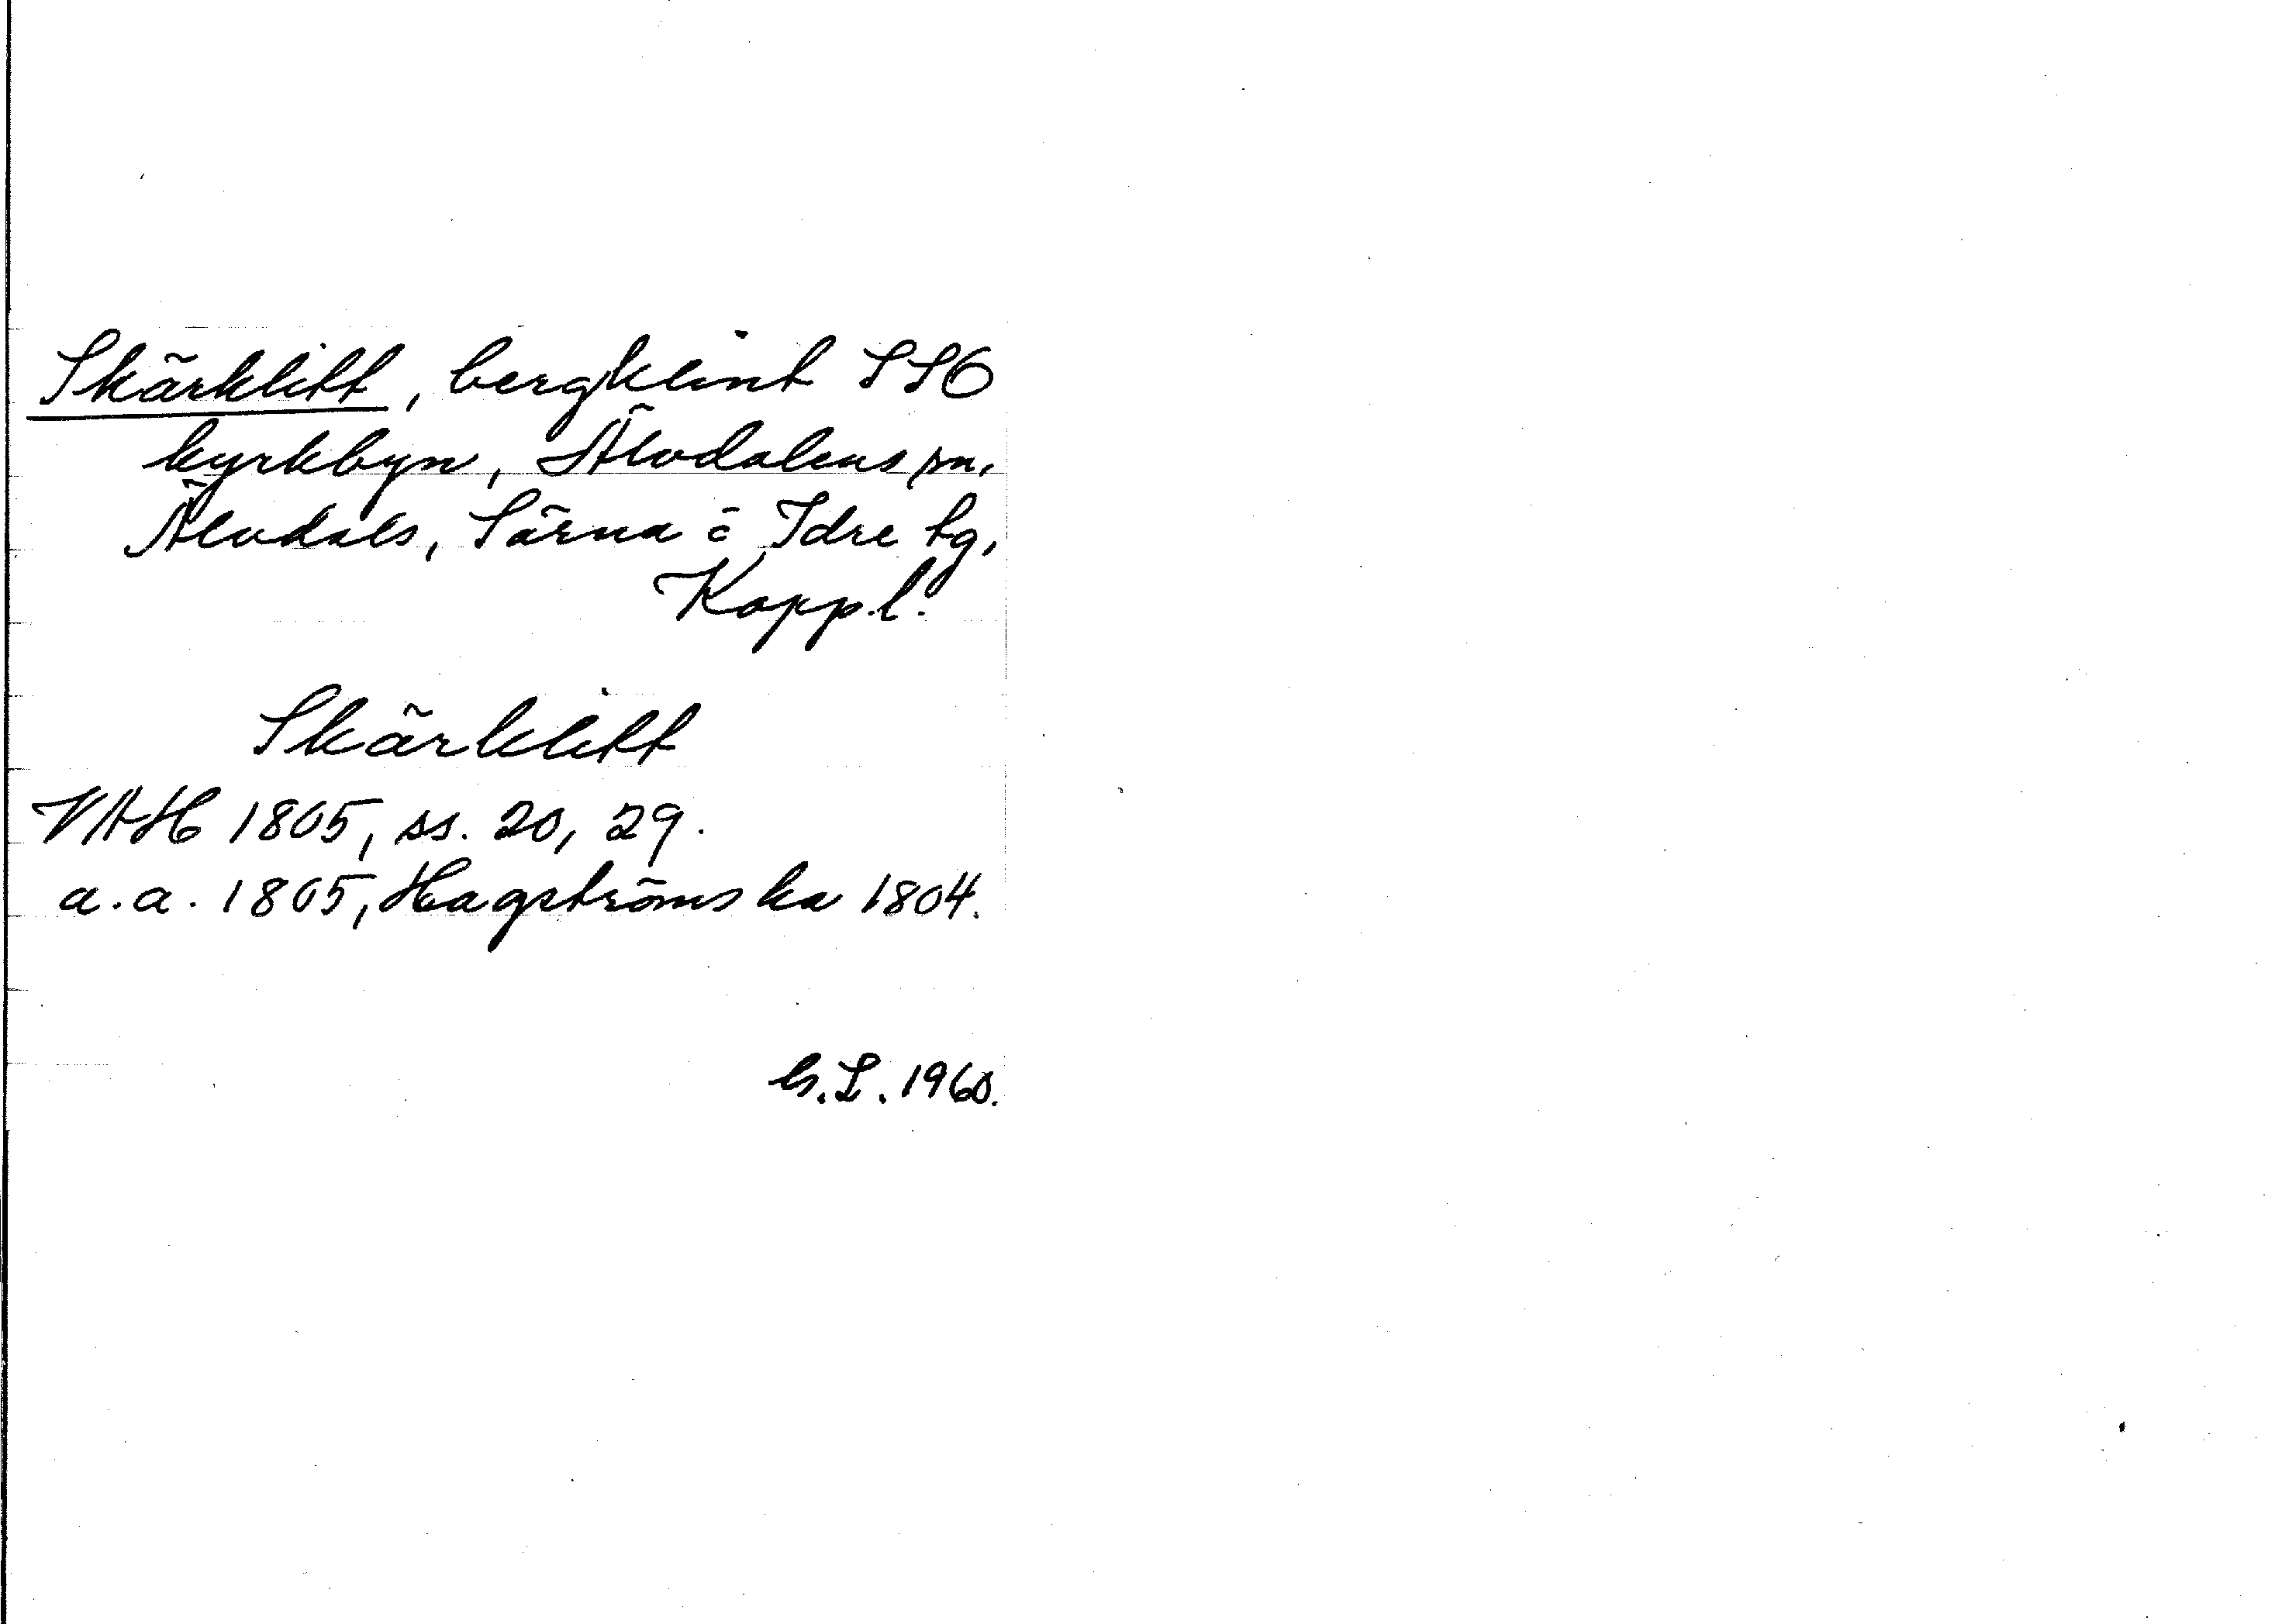 Skärklitt, bergklint SSO
kyrkbyn, Älvdalens sn,
Älvdals, Särna o Idre tg,
Kopp.l.
Skärklitt
VAH 1805, ss. 20, 29.
a.a. 1805, Hagströms ka 1804.
G.L. 1960.